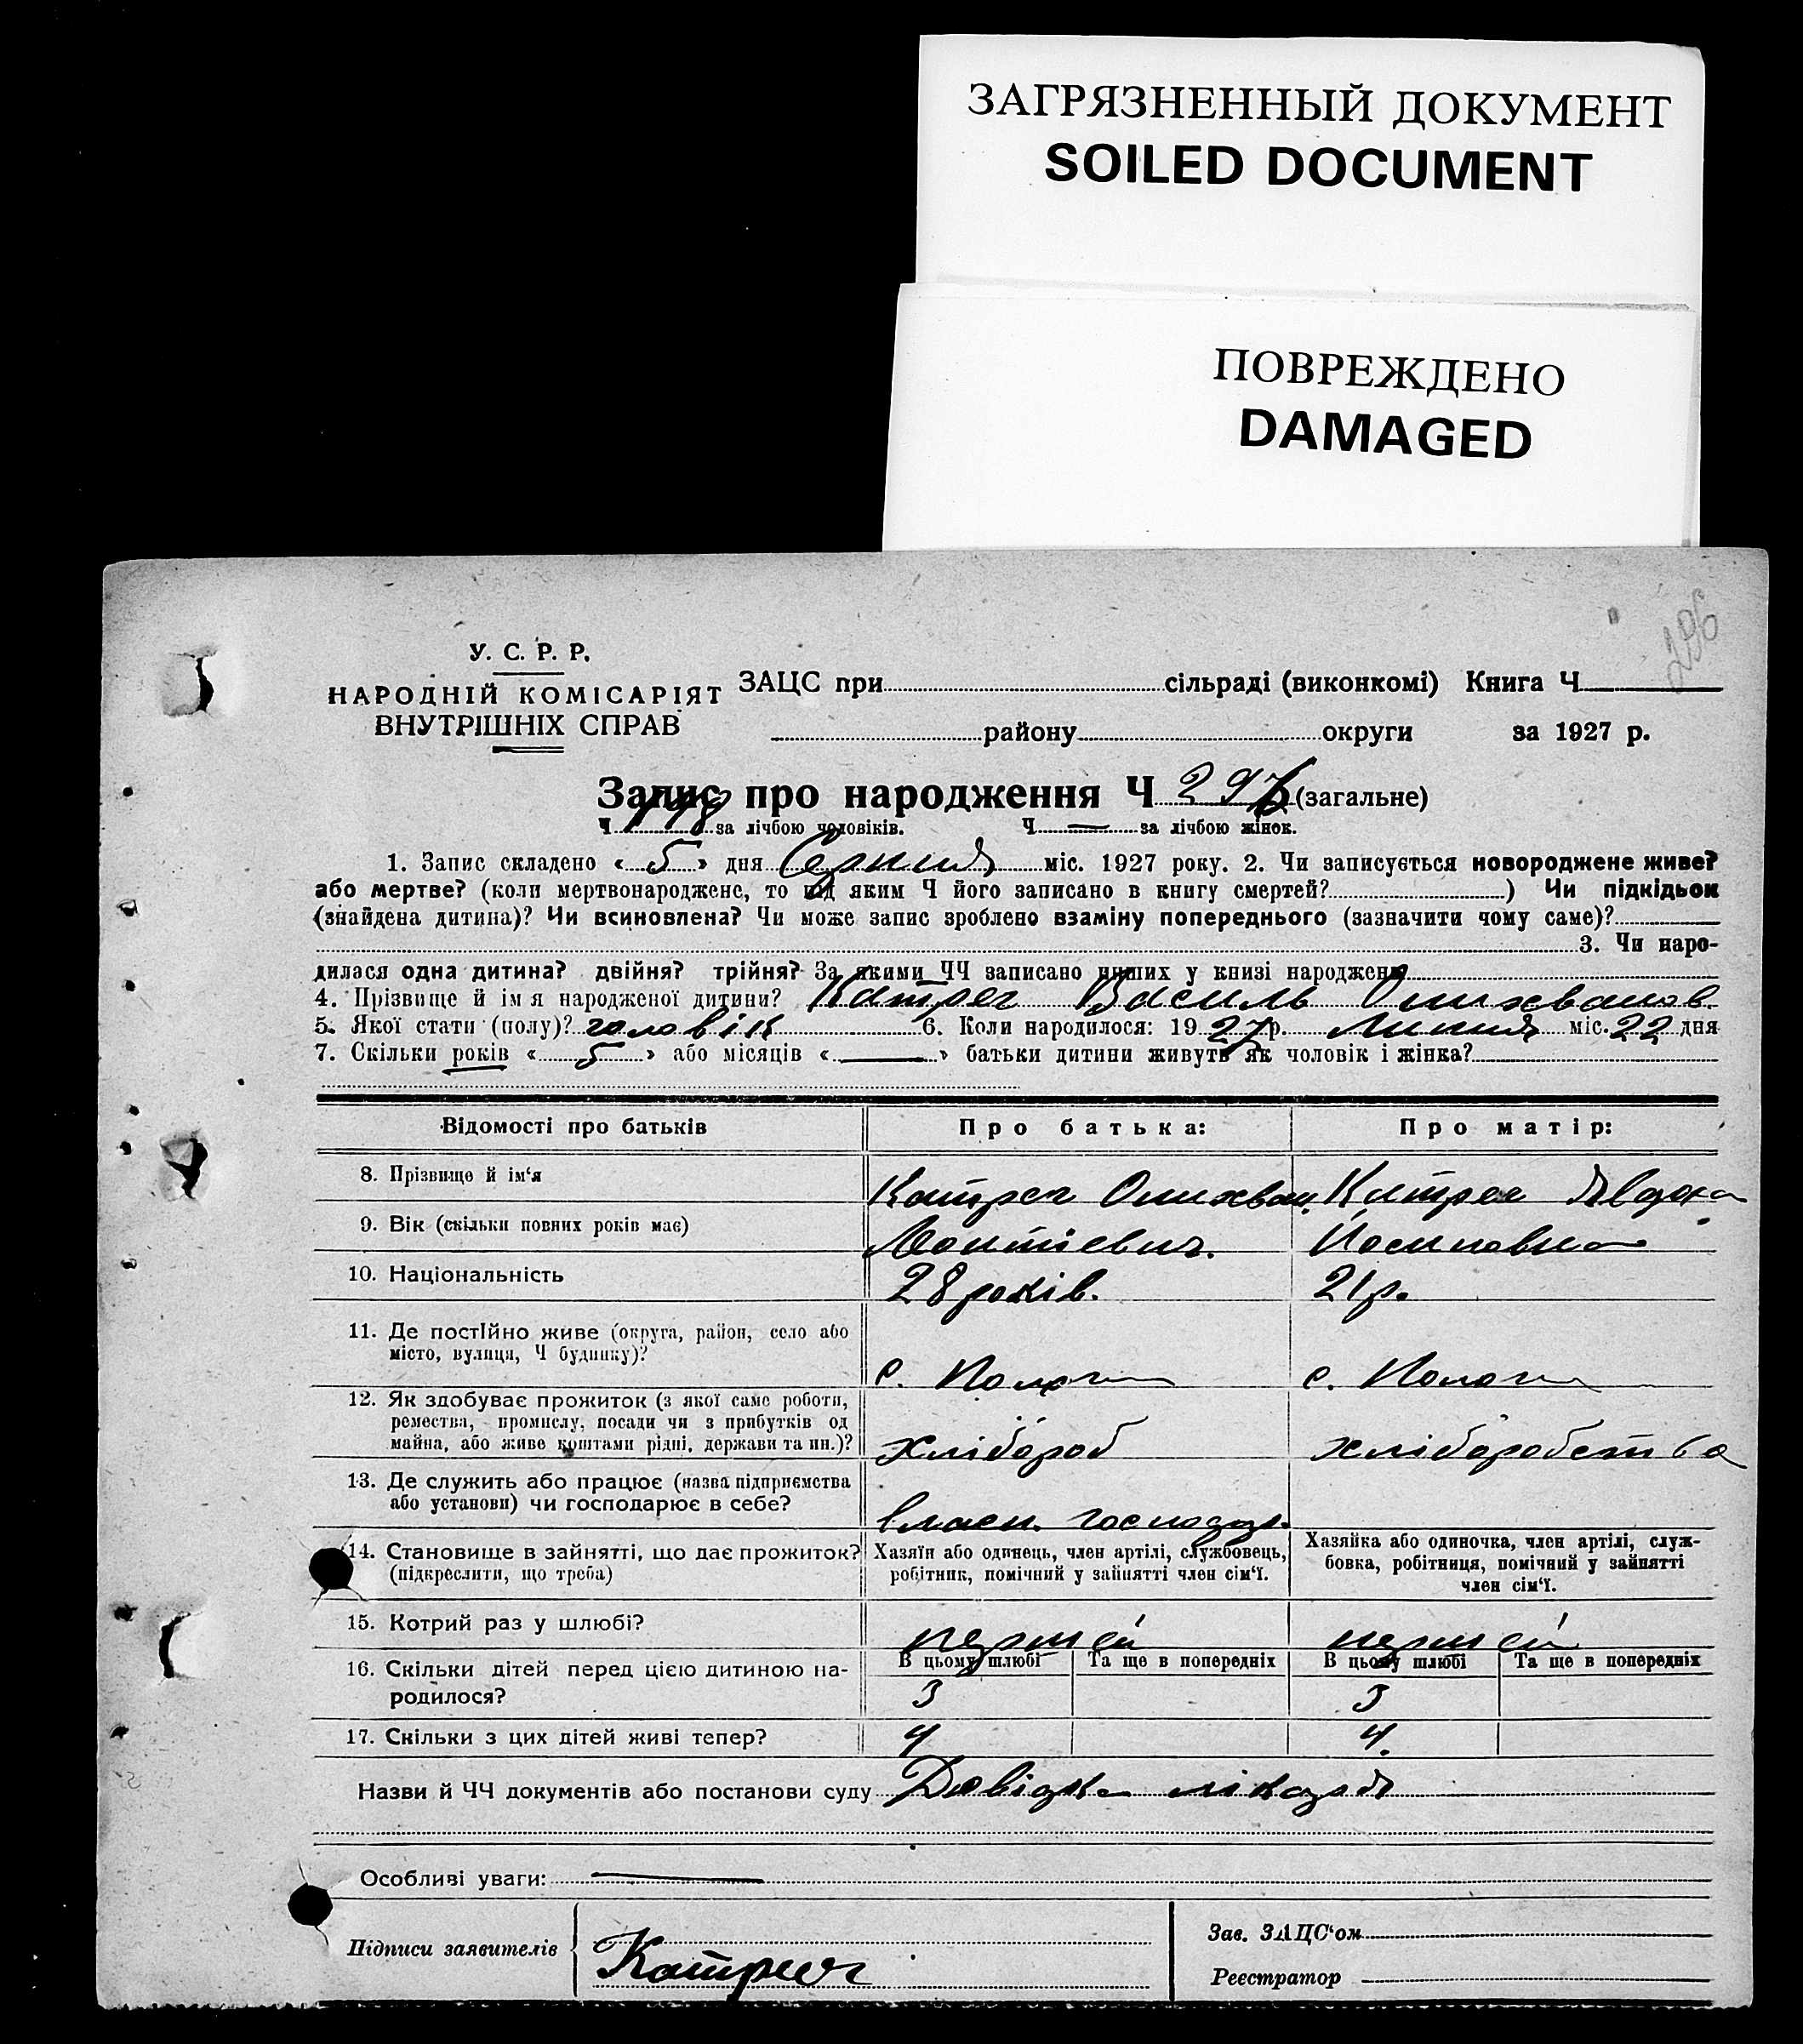 ЗАГРЯЗНЕННЫЙ ДОКУМЕНТ
SOILED DOCUMENT
ПОВРЕЖДЕНО
DAMAGED
296
У. С. Р. Р.
НАРОДНІЙ КОМІСАРІЯТ
ВНУТРІШНІХ СПРАВ
ЗАЦС при сільраді (виконкомі) Книга Ч
району округи за 1927 р.
Запис про народження Ч 296 (загальне)
Ч 148 за лічбою чоловіків. Ч — за лічбою жінок.
1. Запис складено « 5 » дня Серпня міс. 1927 року. 2. Чи записується новороджене живе?
або мертве? (коли мертвонароджене, то під яким Ч його записано в книгу смертей? ) Чи підкідьок
(знайдена дитина)? Чи всиновлена? Чи може запис зроблено взаміну попереднього (зазначити чому саме)?
3. Чи наро-
дилася одна дитина? двійня? трійня? За якими ЧЧ записано инших у книзі народжень
4. Прізвище й ім я народженої дитини? Катреч Василь
5. Якої стати (полу)? чоловік 6. Коли народилося: 19 27 р. Липня міс. 22 дня
7. Скільки років « 5 » або місяців « — » батьки дитини живуть як чоловік і жінка?
Відомості про батьків Про батька: Про матір:
8. Прізвище й ім‘я Катреч Катреч Явдоха
9. Вік (скільки повних років має) Йосиповна
10. Національність 28 років. 21 р.
11. Де постійно живе (округа, район, село або
місто, вулиця, Ч будинку)? с. Пологи с. Пологи
12. Як здобуває прожиток (з якої саме роботи,
ремества, промислу, посади чи з прибутків од
майна, або живе коштами рідні, держави та ин.)? хлібороб хліборобства
13. Де служить або працює (назва підприємства
або установи) чи господарює в себе? власн. господар.
14. Становище в зайнятті, що дає прожиток?
(підкреслити, що треба)
Хазяїн або одинець, член артілі, службовець,
робітник, помічний у зайнятті член сім‘ї.
Хазяйка або одиночка, член артілі, служ-
бовка, робітниця, помічний у зайнятті
член сім‘ї.
15. Котрий раз у шлюбі? першей першей
16. Скільки дітей перед цією дитиною на-
родилося?
В цьому шлюбі Та ще в попередніх В цьому шлюбі Та ще в попередніх
3 3
17. Скільки з цих дітей живі тепер? 4 4.
Назви й ЧЧ документів або постанови суду Довідка лікаря
Особливі уваги: —
Підписи заявителів Катреч
Зав. ЗАЦС‘ом
Реєстратор